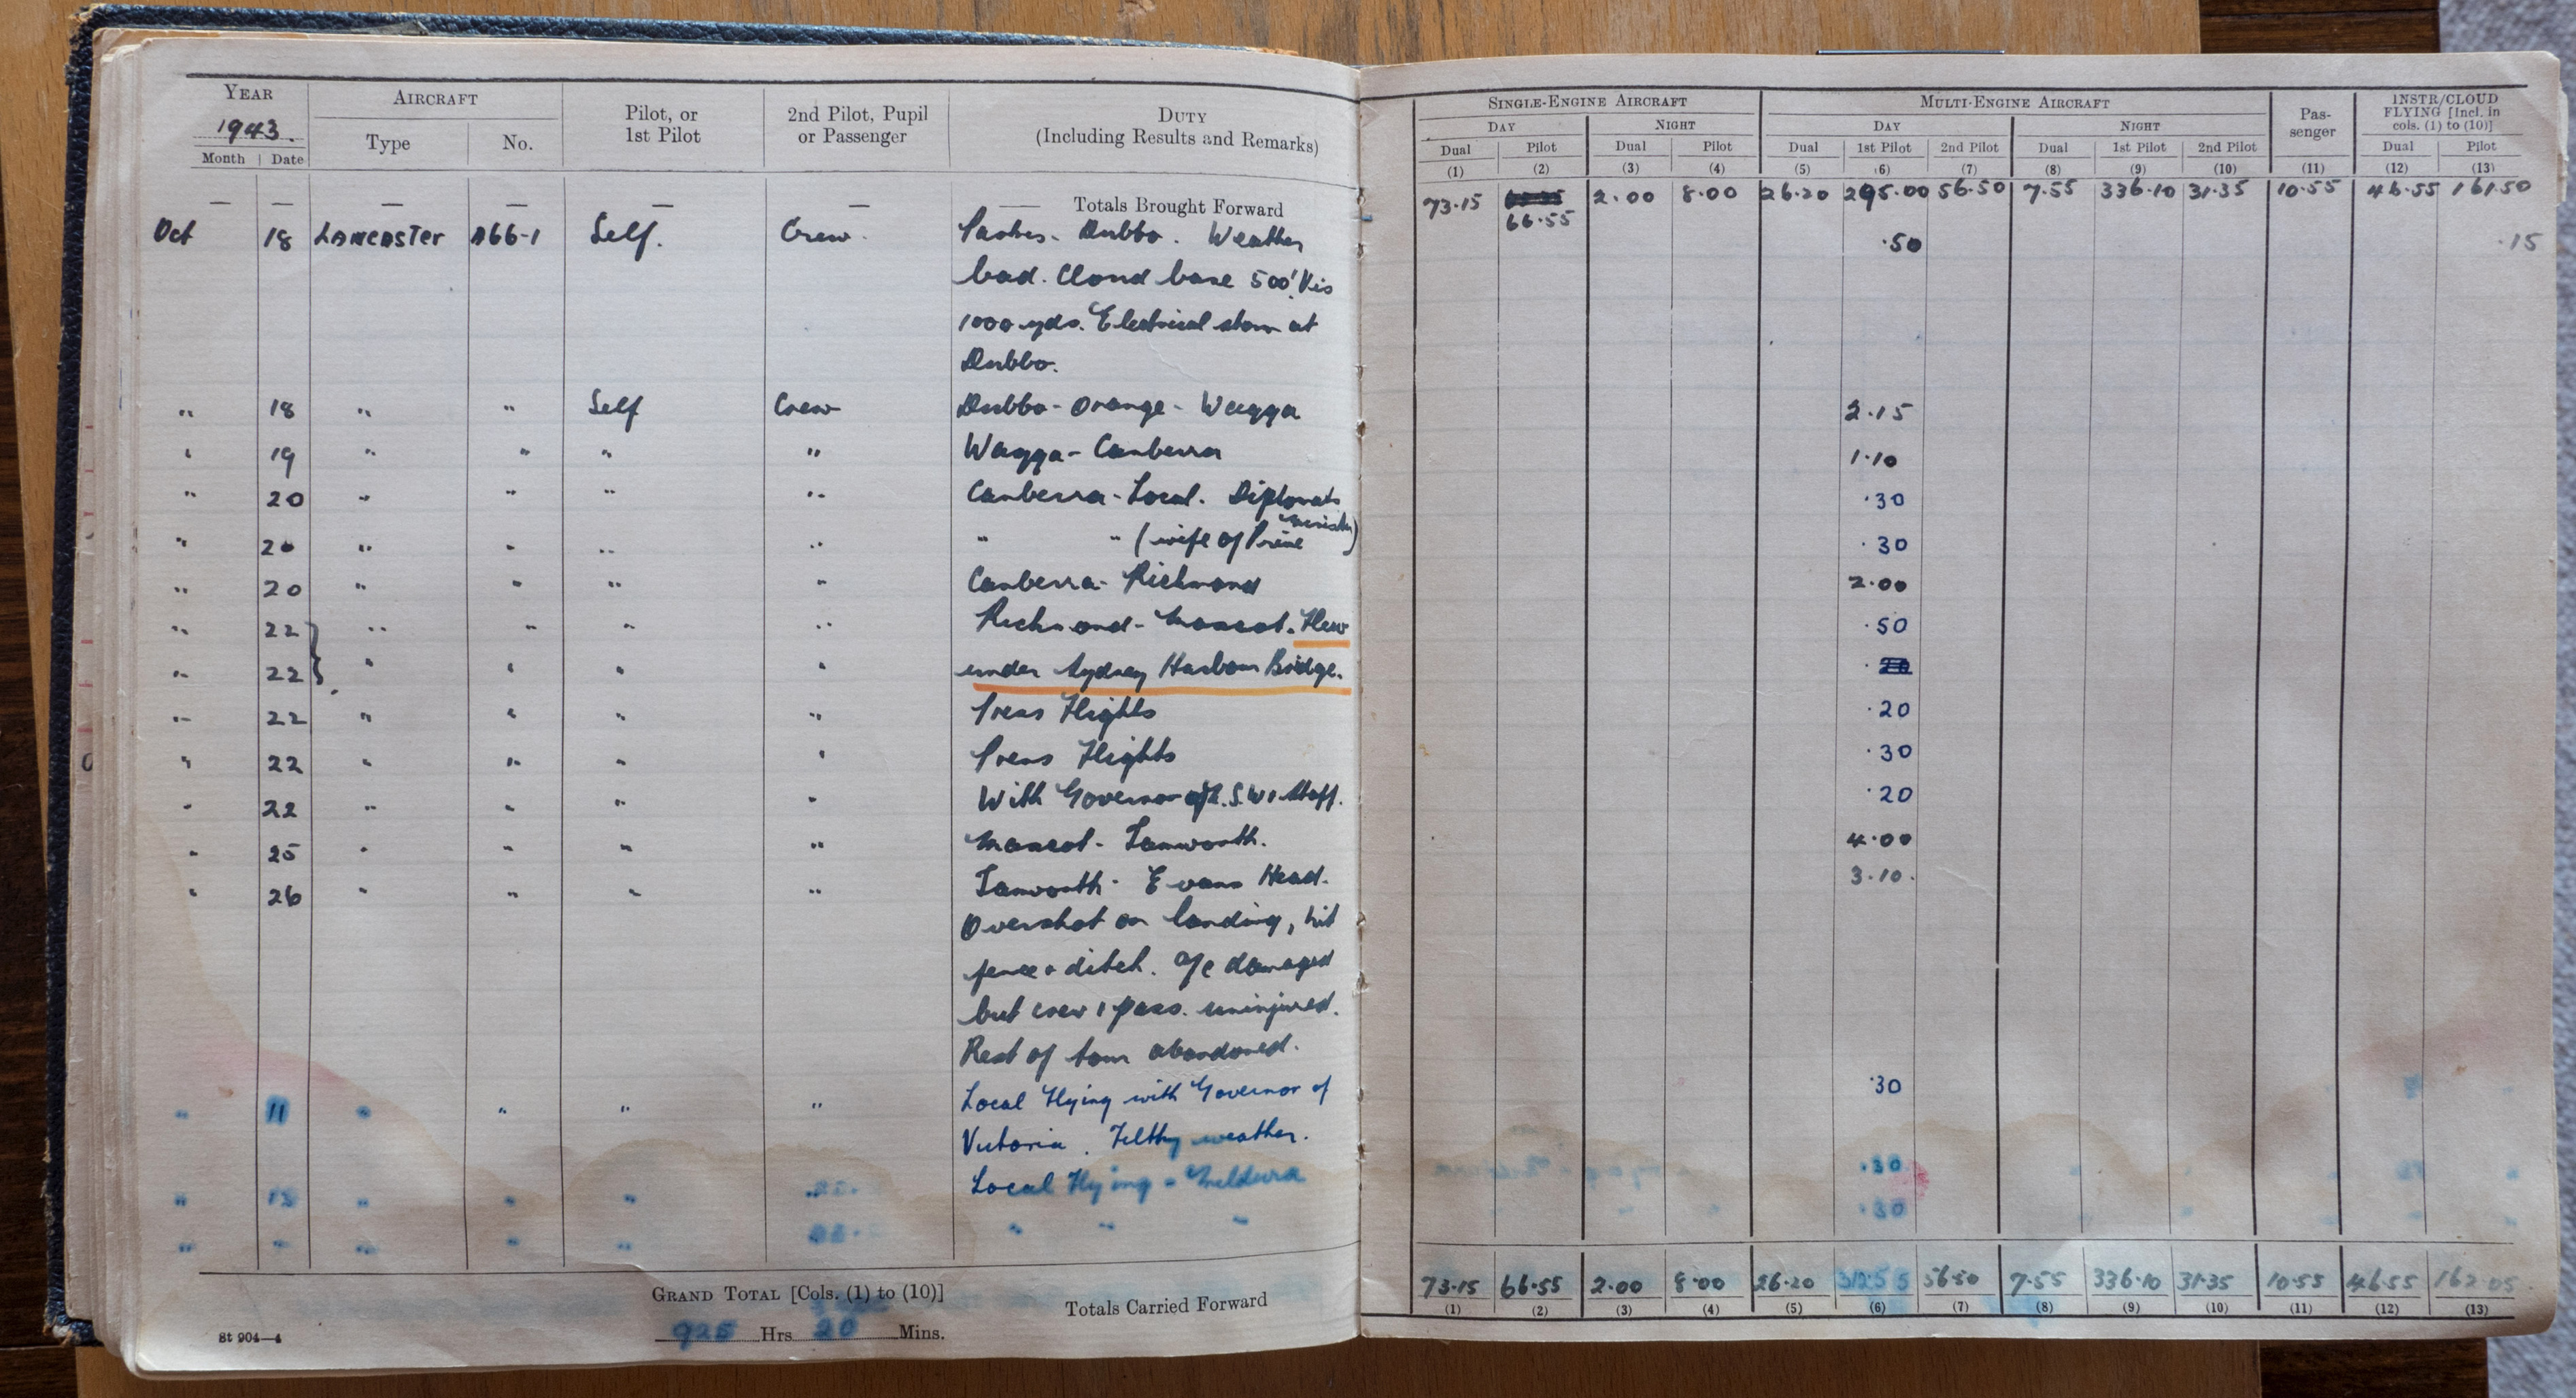 YEAR AIRCRAFT Pilot, or 1st Pilot 2nd Pilot, Pupil or Passenger DUTY (Including Results and Remarks) SINGLE-ENGINE AIRCRAFT MULTI-ENGINE AIRCRAFT Pas-senger INSTR/CLOUD FLYING [Incl. in cols. (1) to (10)]
1943. Type No. DAY NIGHT DAY NIGHT
Month Date Dual Pilot Dual Pilot Dual 1st Pilot 2nd Pilot Dual 1st Pilot 2nd Pilot Dual Pilot
(1) (2) (3) (4) (5) (6) (7) (8) (9) (10) (11) (12) (13)
— — — — — — — Totals Brought Forward 73.15 66.55 2.00 8.00 26.20 295.00 56.50 7.55 336.10 31.35 10.55 46.55 161.50
Oct 18 Lancaster A66-1 Self. Crew. Parkes - Dubbo. Weather .50 .15
bad. Cloud base 500'. Vis
1000 yds. Electrical storm at
Dubbo.
" 18 " " Self Crew Dubbo - Orange - Wagga 2.15
" 19 " " " " Wagga - Canberra 1.10
" 20 " " " " Canberra - Local. Diplomats .30
" 20 " " " " " " (wife of Prime Minister) .30
" 20 " " " " Canberra - Richmond 2.00
" 22 " " " " Richmond - Mascot. Flew .50
" 22 " " " " under Sydney Harbour Bridge. .20
" 22 " " " " Press Flights .20
" 22 " " " " Press Flights .30
" 22 " " " " With Governor of N.S.W. & Staff. .20
" 25 " " " " Mascot - Tamworth. 4.00
" 26 " " " " Tamworth - Evans Head. 3.10.
Overshot on landing, hit
fence & ditch. A/c damaged
but crew & pass. uninjured.
Rest of tour abandoned.
" 11 " " " " Local Flying with Governor of .30
Victoria. Filthy weather.
" 15 " " " Local Flying - Mildura .30
" " " " " " " " .30
GRAND TOTAL [Cols. (1) to (10)] Totals Carried Forward 73.15 66.55 2.00 8.00 26.20 312.55 56.50 7.55 336.10 31.35 10.55 46.55 162.05
(1) (2) (3) (4) (5) (6) (7) (8) (9) (10) (11) (12) (13)
St 904—4 925 Hrs 20 Mins.